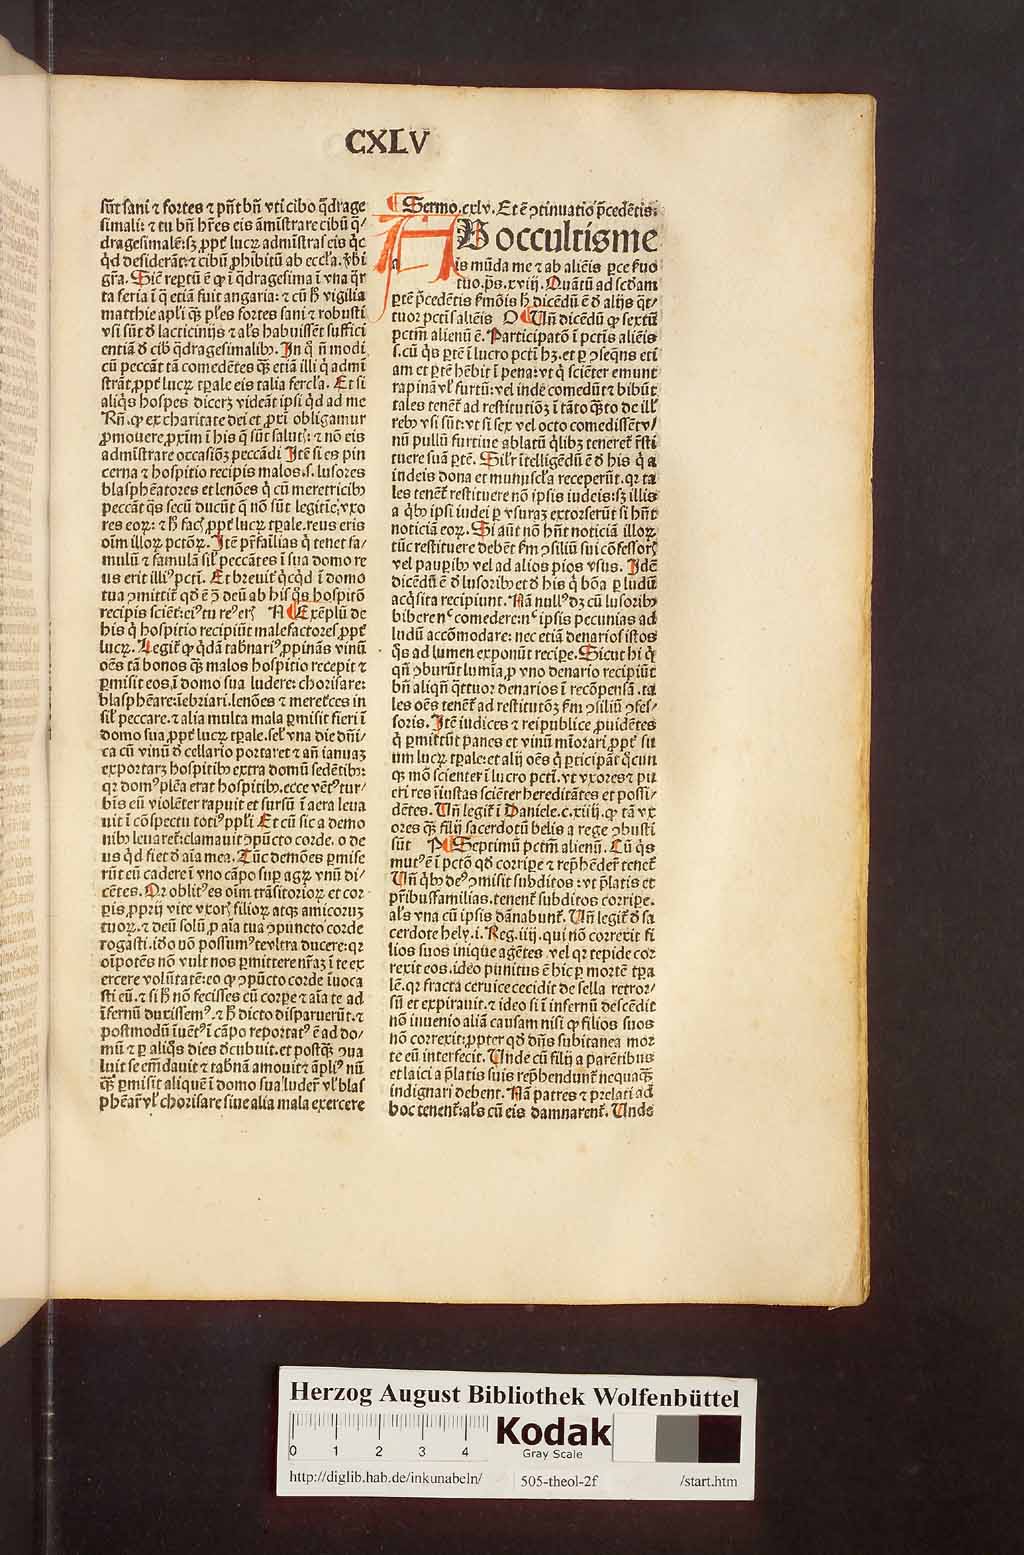 CXLV
sūt sani ⁊ fortes ⁊ pn̄t bn̄ vti cibo q̄drage
simali: ⁊ tu bn̄ hr̄es eis āmistrare cibū q̄/
dragesimalē: sꝫ ꝓpt̄ lucꝝ admīstras eis q̄c
q̄d desiderāt: ⁊ cibū ꝓhibitū ab eccl̄a. v̄bi
gr̄a. Siē reptū ē ꝙ ī q̄dragesima ī vna q̄r
ta feria ī q̄ etiā fuit angaria: ⁊ cū h̄ vigilia
matthie apl̄i q̄ꝫ pl̄es fortes sani ⁊ robusti
vsi sūt d̄ lacticinijs ⁊ al̄s habuissēt suffici
entiā d̄ cib q̄dragesimalibꝰ. In q̄ n̄ modi
cū peccāt tā comedētes q̄ꝫ etiā illi q̄ admī
strāt ꝓpt̄ lucꝝ tꝑale eis talia fercl̄a. Et si
aliq̄s hospes dicerꝫ videāt ipsi q̄d ad me
Rn̄. ꝙ ex charitate dei et ꝓxī obligamur
ꝓmouere ꝓxim̄ ī his q̄ sūt salutꝭ: ⁊ nō eis
admīstrare occasiōꝫ peccādi Itē si es pin
cerna ⁊ hospitio recipis malos. s. lusores
blasphēatores et lenōes q̄ cū meretricibꝰ
peccāt q̄s secū ducūt q̄ nō sūt legitīe vxo
res eoꝝ: ⁊ h̄ facꝭ ꝓpt̄ lucꝝ tꝑale. reus eris
oīm illoꝝ pctōꝝ. Itē pr̄fāilias q̄ tenet fa/
mulū ⁊ famulā sil̄ peccātes ī sua domo re
us erit illiꝰ pctī. Et breuit̄ q̄cq̄d ī domo
tua ꝯmittit̄ qd̄ ē ꝯ̄ deū ab his q̄s hospitō
recipis sciēt: eiꝰ tu reꝰ erꝭ N Exēplū de
his q̄ hospitio recipiūt malefactores ꝓpt̄
lucꝝ. Legit̄ ꝙ q̄dā tabn̄ariꝰ ꝓpinās vinū
oēs tā bonos q̄ꝫ malos hospitio recepit ⁊
ꝑmisit eos ī domo sua ludere: chorisare:
blasphēare: īebriari. lenōes ⁊ meret̄ces in
sil̄ peccare. ⁊ alia multa mala ꝑmisit fieri ī
domo sua ꝓpt̄ lucꝝ tꝑale. sel̄ vna die dn̄i/
ca cū vinū d̄ cellario portaret ⁊ an̄ ianuaꝫ
exportarꝫ hospitibꝰ extra domū sedētibꝰ:
qꝛ domꝰ plēa erat hospitibꝰ. ecce vētꝰ tur/
bīs eū violēter rapuit et sursū ī aera leua
uit ī cōspectu totiꝰ ppl̄i Et cū sic a demo
nibꝰ leuaret̄: clamauit ꝯpūcto corde. o de
us q̄d fiet d̄ aīa mea. Tūc demōes ꝑmise
rūt eū cadere ī vno cāpo suꝑ agꝝ vnū di/
cētes. Or oblitꝰ es oīm trāsitorioꝝ et cor
ꝑis ꝓprij vite vxorꝭ filioꝝ atqꝫ amicoruꝫ
tuoꝝ. ⁊ deū solū ꝓ aīa tua ꝯpuncto corde
rogasti. iđo nō possumꝰ te vltra ducere: qꝛ
oīpotēs nō vult nos ꝑmittere nr̄aꝫ ī te ex
ercere volūtatē: eo ꝙ ꝯpūcto corde īuoca
sti eū. ⁊ si h̄ nō fecisses cū corꝑe ⁊ aīa te ad
īfernū duxissemꝰ. ⁊ h̄ dicto disparuerūt. ⁊
postmodū īuētꝰ ī cāpo reportatꝰ ē ad do/
mū ⁊ ꝑ aliq̄s dies d̄cubuit. et postq̄ꝫ ꝯua
luit se em̄dauit ⁊ tabn̄ā amouit ⁊ āpliꝰ nū
q̄ꝫ ꝑmisit aliquē ī domo sua luder̄ vl̄ blas
phēar̄ vl̄ chorisare siue alia mala exercere
Sermo. cxlv. Et ē ꝯtinuatio p̄cedētis.
AB occultis me
a
is mūda me ⁊ ab aliēis ꝑce ẜuo
tuo. ps̄. xviij. Quātū ad scđam
ꝑtē p̄cedētis ẜmōis h̄ dicēdū ē d̄ alijs q̄t/
tuor pctīs aliēis O Un̄ dicēdū ꝙ sextū
pctm̄ alienū ē. Participatō ī pctīs aliēis
s. cū q̄s ꝑtē ī lucro pctī hꝫ. et ꝑ ꝯseq̄ns eti
am et ꝑtē hēbit ī pena: vt q̄ sciēter emunt
rapinā vl̄ furtū: vel inde comedūt ⁊ bibūt
tales tenēt̄ ad restitutiōꝫ ī tāto q̄ꝫto de ill̄
rebꝰ vsi sūt: vt si sex vel octo comedissēt v/
nū pullū furtiue ablatū q̄libꝫ teneret̄ r̄sti
tuere suā ꝑtē. Sil̄r ītelligēdū ē d̄ his q̄ a
iudeis dona et munuscl̄a receperūt. qꝛ ta
les tenēt̄ restituere nō ipsis iudeis: sꝫ illis
a q̄bꝰ ipsi iudei ꝑ vsuraꝫ extorserūt si hn̄t
noticiā eoꝝ. Si aūt nō hn̄t noticiā illoꝝ
tūc restituere debēt ẜm ꝯsiliū sui cōfessorꝭ
vel pauꝑibꝰ vel ad alios pios vsus. Idē
dicēdū ē d̄ lusoribꝰ et d̄ his q̄ bōa ꝑ ludū
acq̄sita recipiunt. Nā nullꝰ dꝫ cū lusoribꝰ
bibere nec̄ comedere: nec̄ ipsis pecunias ad
ludū accōmodare: nec etiā denarios istos
q̄s ad lumen exponūt recipe. Sicut hi q̄
qn̄ ꝯburūt lumīa ꝓ vno denario recipiūt
bn̄ aliqn̄ q̄ttuor denarios ī recōpensā. ta
les oēs tenēt̄ ad restitutōꝫ ẜm ꝯsiliū ꝯfes/
soris. Itē iudices ⁊ reipublice ꝓuidētes
q̄ ꝑmittūt panes et vinū mīorari ꝓpt̄ su
um lucꝝ tꝑale: et alij oēs q̄ ꝑticipāt q̄cun
qꝫ mō scienter ī lucro pctī. vt vxores ⁊ pu
eri res īiustas sciēter hereditātes et possi/
dētes. Un̄ legit̄ ī Daniele. c. xiiij. ꝙ tā vx
ores q̄ꝫ filij sacerdotū belis a rege ꝯbusti
sūt P Septimū pctm̄ alienū. Cū q̄s
mutꝰ ē ī pctō qd̄ corripe ⁊ rep̄hēder̄ tenet̄
Un̄ q̄bꝰ deꝰ ꝯmisit subditos: vt p̄latis et
pr̄ibusfamilias. tenent̄ subditos corripe.
al̄s vna cū ipsis dānabunt̄. Un̄ legit̄ d̄ sa
cerdote hely. i. Reg. iiij. qui nō correxit fi
lios suos inique agētes. vel qꝛ tepide cor
rexit eos. ideo punitus ē hic ꝑ mortē tꝑa
lē. qꝛ fracta ceruice cecidit de sella retror/
sū et expirauit. ⁊ ideo si ī infernū descēdit
nō inuenio aliā causam nisi ꝙ filios suos
nō correxit: ꝓpter qd̄ dn̄s subitanea mor
te eū interfecit. Unde cū filij a parētibus
et laici a p̄latis suis rep̄hendunt̄ nequaq̄ꝫ
indignari debent. Nā patres ⁊ prelati ad
hoc tenent̄: al̄s cū eis damnarent̄. Unde
Herzog August Bibliothek Wolfenbüttel
0 1 2 3 4
Kodak
Gray Scale
http://diglib.hab.de/inkunabeln/ 505-theol-2f /start.htm